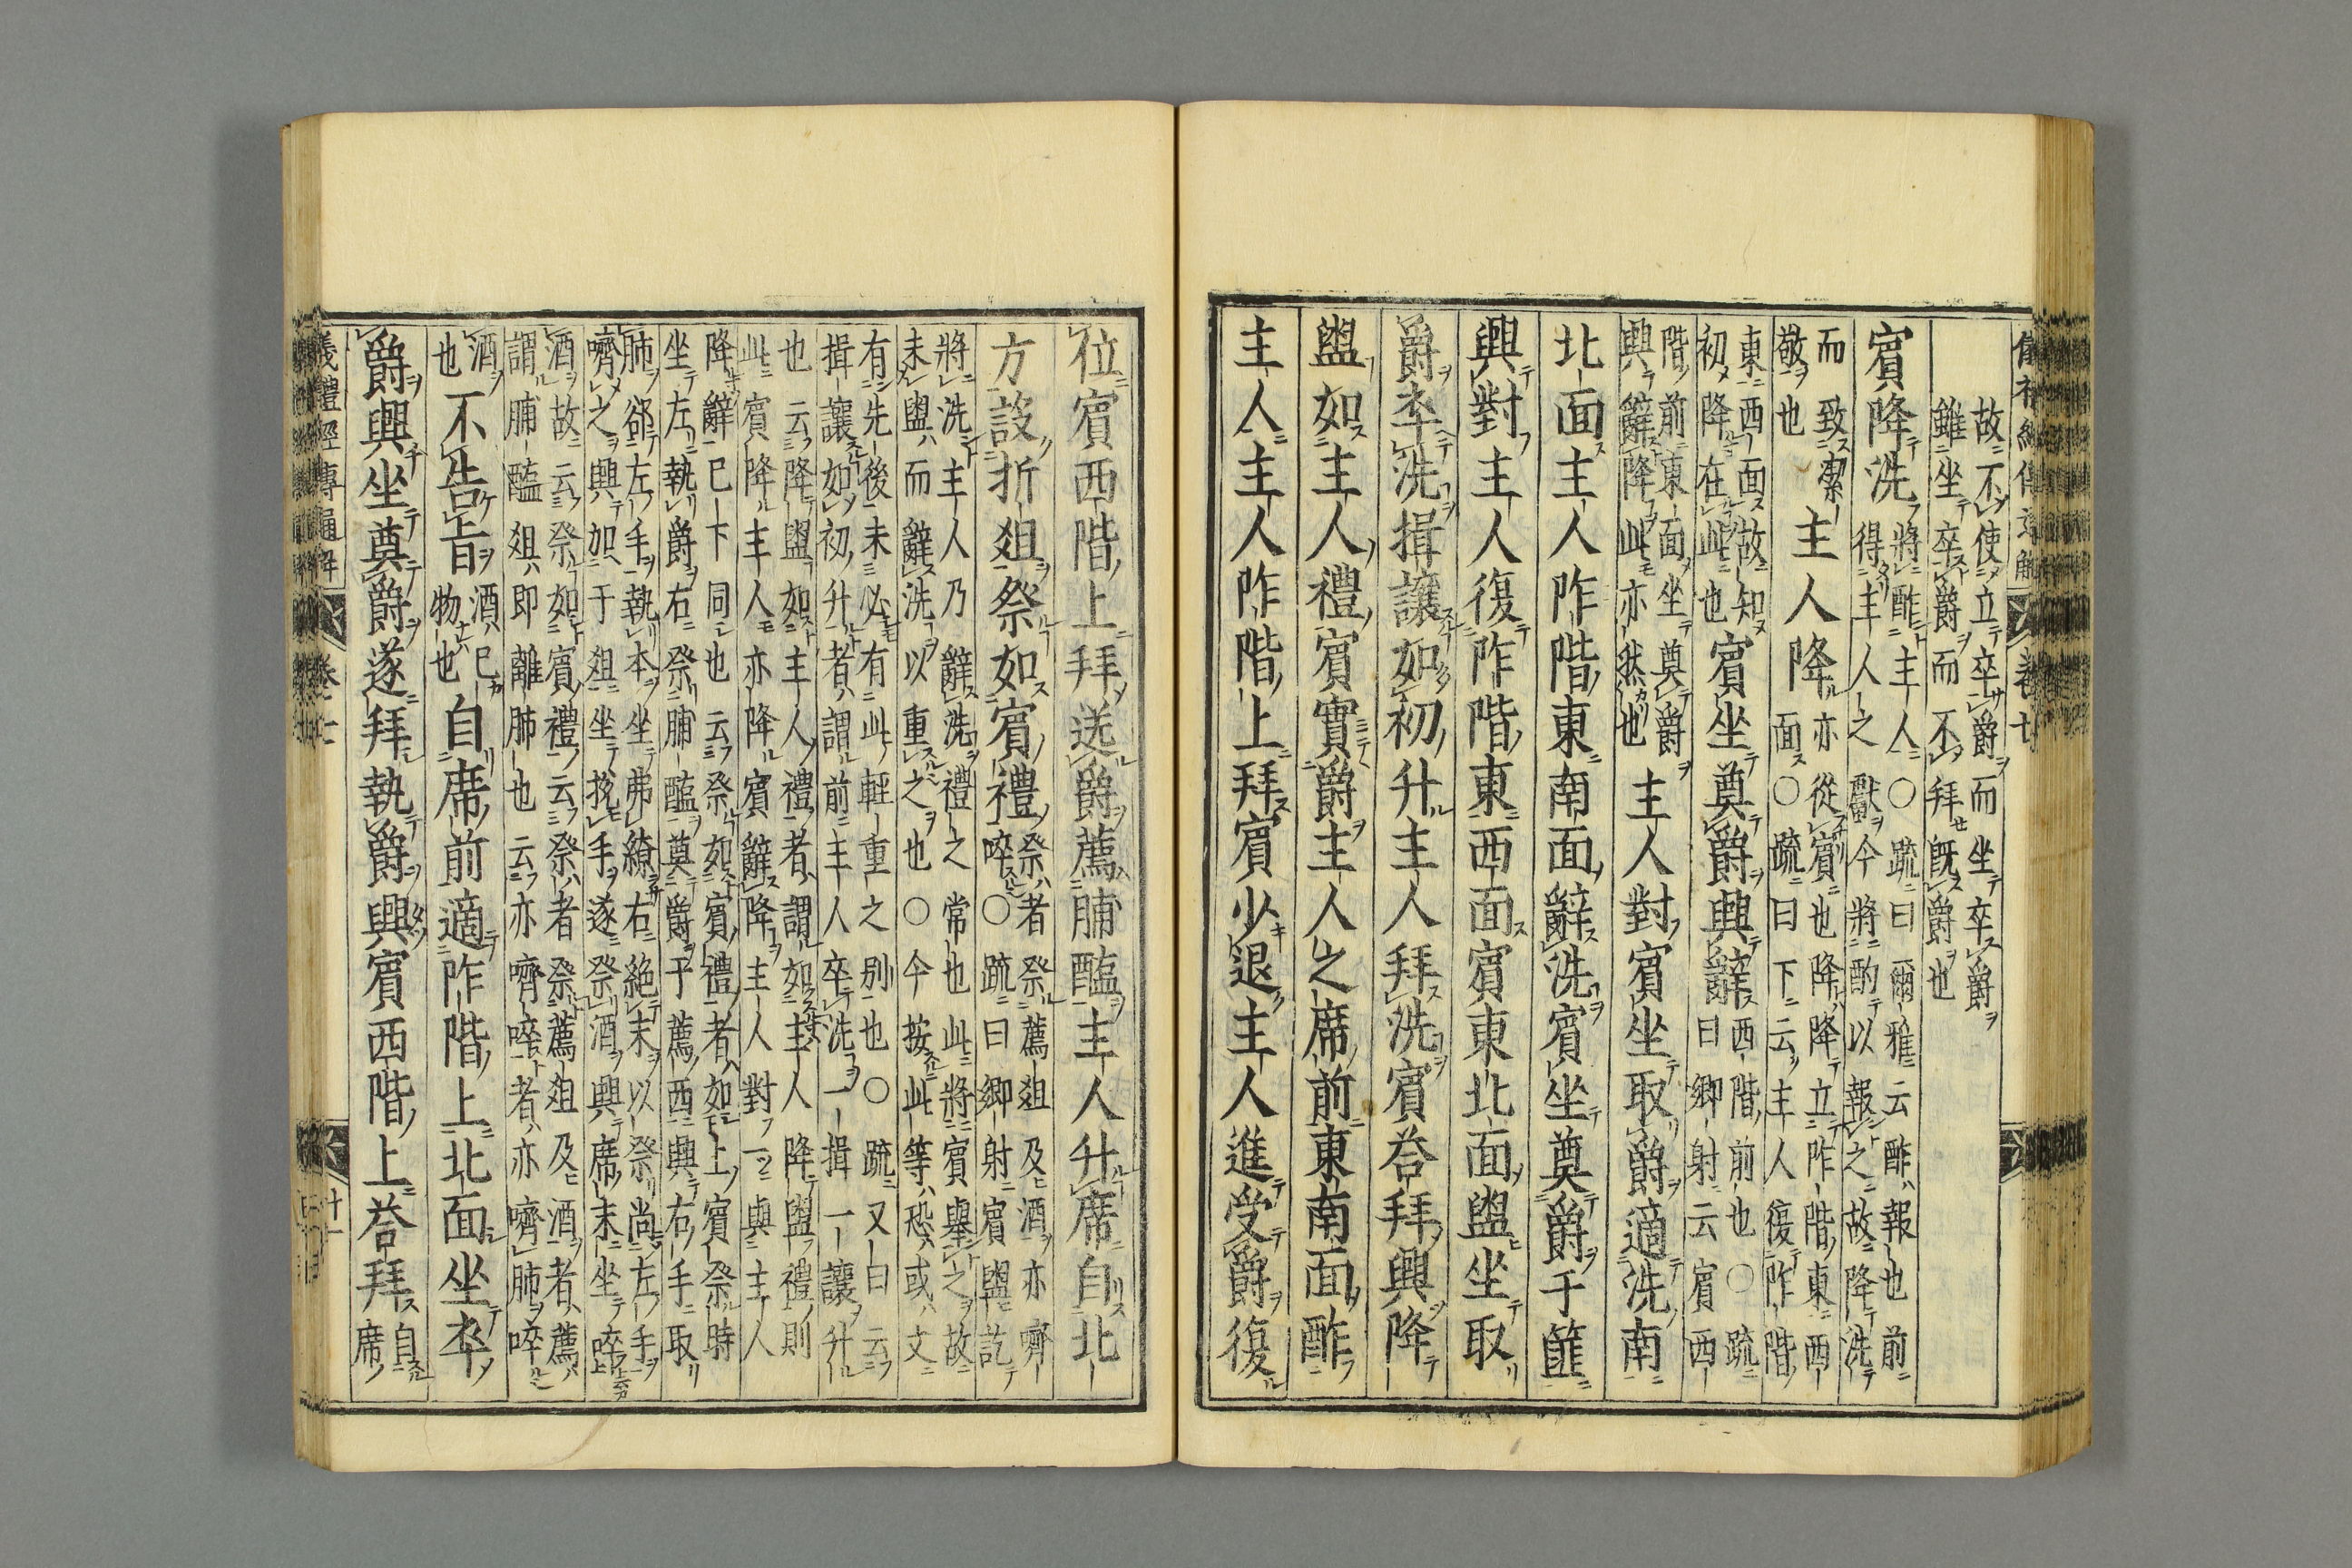 故不使立卒爵而坐卒爵
雖坐卒爵而不拜旣爵也
賓降洗
將酢主人○疏曰爾雅云酢報也前
得主人之獻今將酌以報之故降洗
而致潔
敬也
主人降
亦從賓也降降立阼階東西
面○疏曰下云主人復阼階
東西面故知
初降在此也
賓坐奠爵興辭
西階前也○疏
曰鄉射云賓西
階前東面坐奠爵
興辭降此亦然也
主人對賓坐取爵適洗南
北面主人阼階東南面辭洗賓坐奠爵于篚
興對主人復阼階東西面賓東北面盥坐取
爵卒洗揖讓如初升主人拜洗賓荅拜興降
盥如主人禮賓實爵主人之席前東南面酢
主人主人阼階上拜賓少退主人進受爵復
位賓西階上拜送爵薦脯醢主人升席自北
方設折俎祭如賓禮
祭者祭薦俎及酒亦嚌
啐○疏曰鄉射賓盥訖
將洗主人乃辭洗禮之常也此將賓舉之故
未盥而辭洗以重之也○今按此等恐或文
有先後未必有此輕重之别也○疏又曰云
揖讓如初升者謂前主人卒洗一揖一讓升
也云降盥如主人禮者謂如主人降盥禮則
此賓降主人亦降賓辭降主人對一與主人
降辭已下同也云祭如賓禮者如上賓祭時
坐左執爵右祭脯醢奠爵于薦西興右手取
肺郤左手執本坐弗繚右絶末以祭尚左手
嚌之興加于俎坐挩手遂祭酒興席末坐啐
酒故云祭如賓禮云祭者祭薦俎及酒者薦
謂脯醢俎即離肺也云亦嚌啐者亦嚌肺啐
酒
也
不告旨
酒已
物也
自席前適阼階上北面坐卒
爵興坐奠爵遂拜執爵興賓西階上荅拜
自
席
儀禮經傳通解
卷七
十一